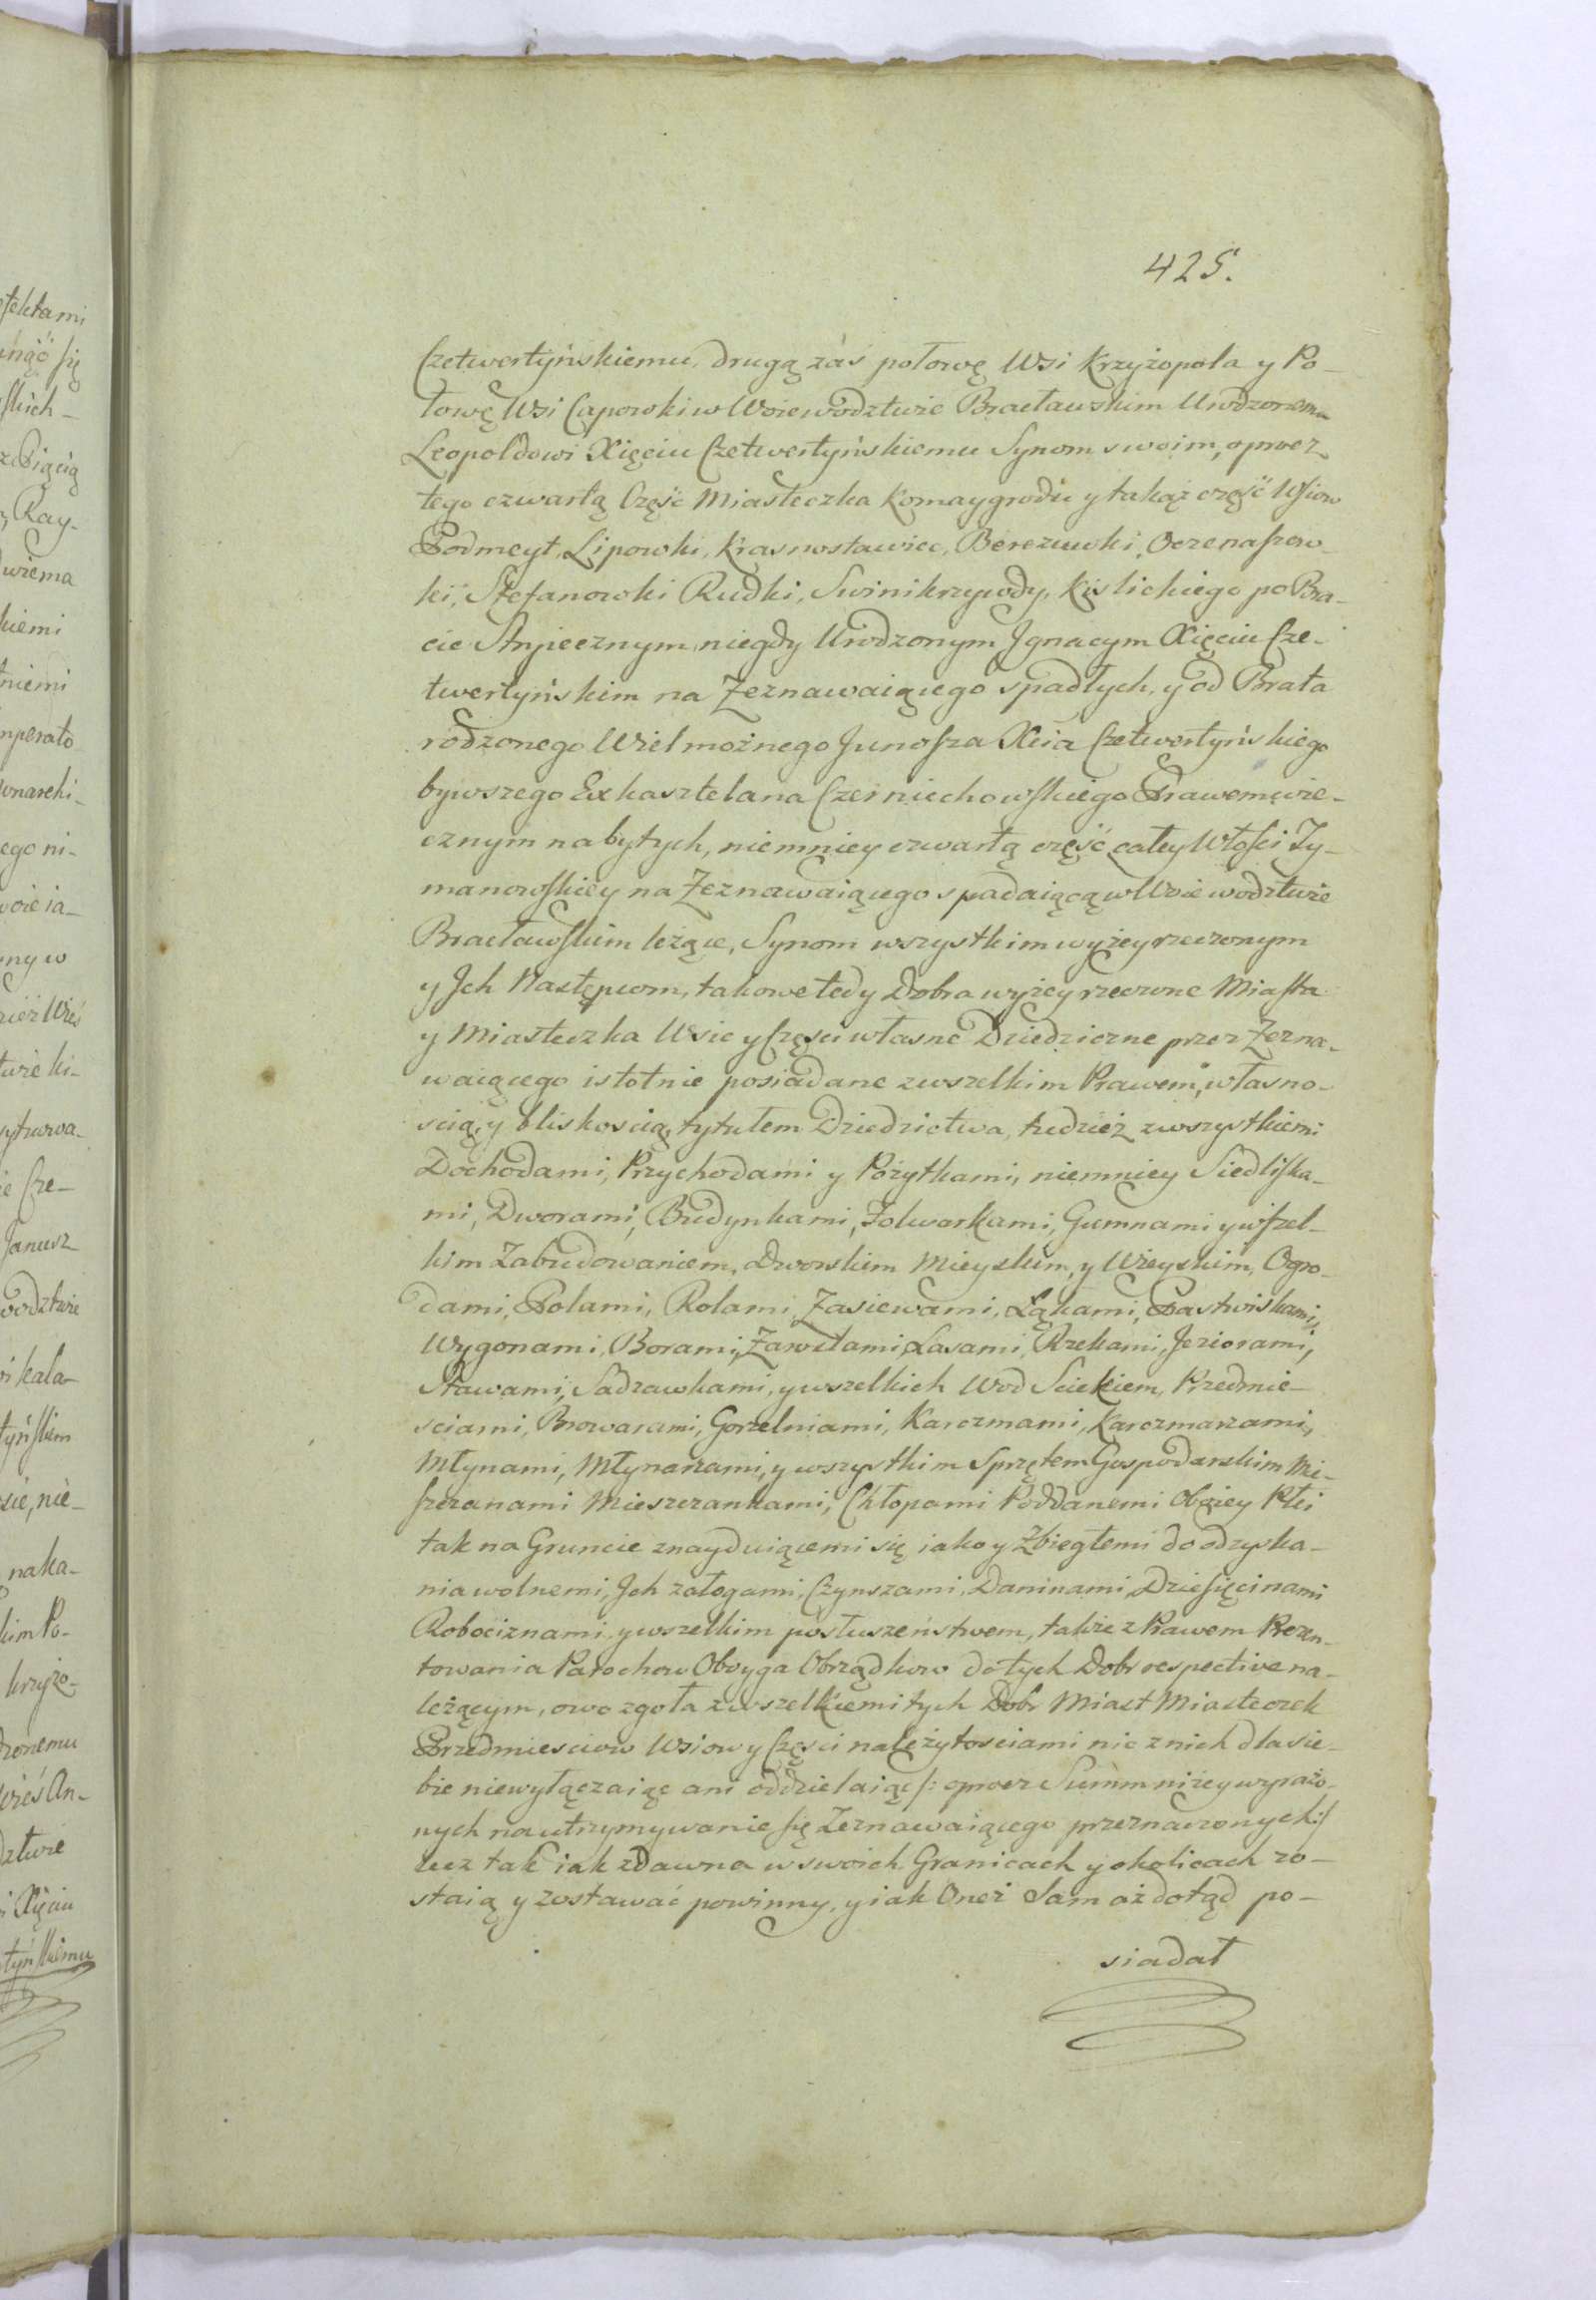 425.
Czetwertyńskiemu, drugą zaś połowę Wsi Krzyżopola y Po-
łowę Wsi Capowki w Woiewodztwie Bracławskim Urodzonemu
Leopoldowi Xięciu Czetwertyńskiemu Synom swoim, oprocz
tego czwartą Część Miasteczka Komaygrodu y takąż część Wsiow
Podmeyt, Lipowki, Krasnostawiec, Berezuwki, Oczenaszow-
ki, Stefanowki Rudki, Swinikrzywdy, Kislickiego po Bra-
cie Stryiecznym niegdy Urodzonym Jgnacym Xięciu Cze-
twertyńskim na Zeznawaiącego spadłych, y od Brata
rodzonego Wielmożnego Junosza Xcia Czetwertyńskiego
bywszego Exkasztelana Czerniechowskiego Prawem wie-
cznym nabytych, niemniey czwartą część całey Włości Ty-
manowskiey na Zeznawaiącego spadaiącą w Woiewodztwie
Bracławskim leżące, Synom wszystkim wyżey rzeczonym
y Jch Następcom, takowe tedy Dobra wyżey rzeczone Miasta
y Miasteczka Wsie y Części własne Dziedziczne przez Zezna-
waiącego istotnie posiadane z wszelkim Prawem, własno-
scią, y bliskoscią, tytułem Dziedzictwa, tudzież z wszystkiemi
Dochodami, Przychodami y Pożytkami, niemniey Siedliska-
mi, Dworami, Budynkami, Folwarkami, Gumnami y wszel-
kim Zabudowaniem, Dworskim Mieyskim, y Wieyskim, Ogro-
dami, Polami, Rolami, Zasiewami, Łąkami, Pastwiskami,
Wygonami, Borami, Zarostami, Lasami, Rzekami, Jeziorami,
Stawami, Sadzawkami, y wszelkich Wod Sciekiem, Przedmie-
sciami, Browarami, Gorzelniami, Karczmami, Karczmarzami,
Młynami, Młynarzami, y wszystkim Sprzętem Gospodarskim Mie-
szczanami Mieszczankami, Chłopami Poddanemi Oboiey Płci
tak na Gruncie znayduiącemi się iako y Zbiegłemi do odzyska-
nia wolnemi, Jch załogami, Czynszami, Daninami, Dziesięcinami
Robociznami, y wszelkim posłuszeństwem, także z Prawem Prezen-
towania Parochow Oboyga Obrządkow do tych Dobr respective na-
leżącym, owo zgoła z wszelkiemi tych Dobr Miast Miasteczek
Przedmiesciow Wsiow y Części należytosciami nic z nich dla sie-
bie niewyłączaiąc ani oddzielaiąc /: oprocz Summ niżey wyrażo-
nych na utrzymywanie się Zeznawaiącego przeznaczonych :/
lecz tak iak zdawna w swoich Granicach y okolicach zo-
staią y zostawać powinny, y iak Oneż Sam aż dotąd po-
siadał